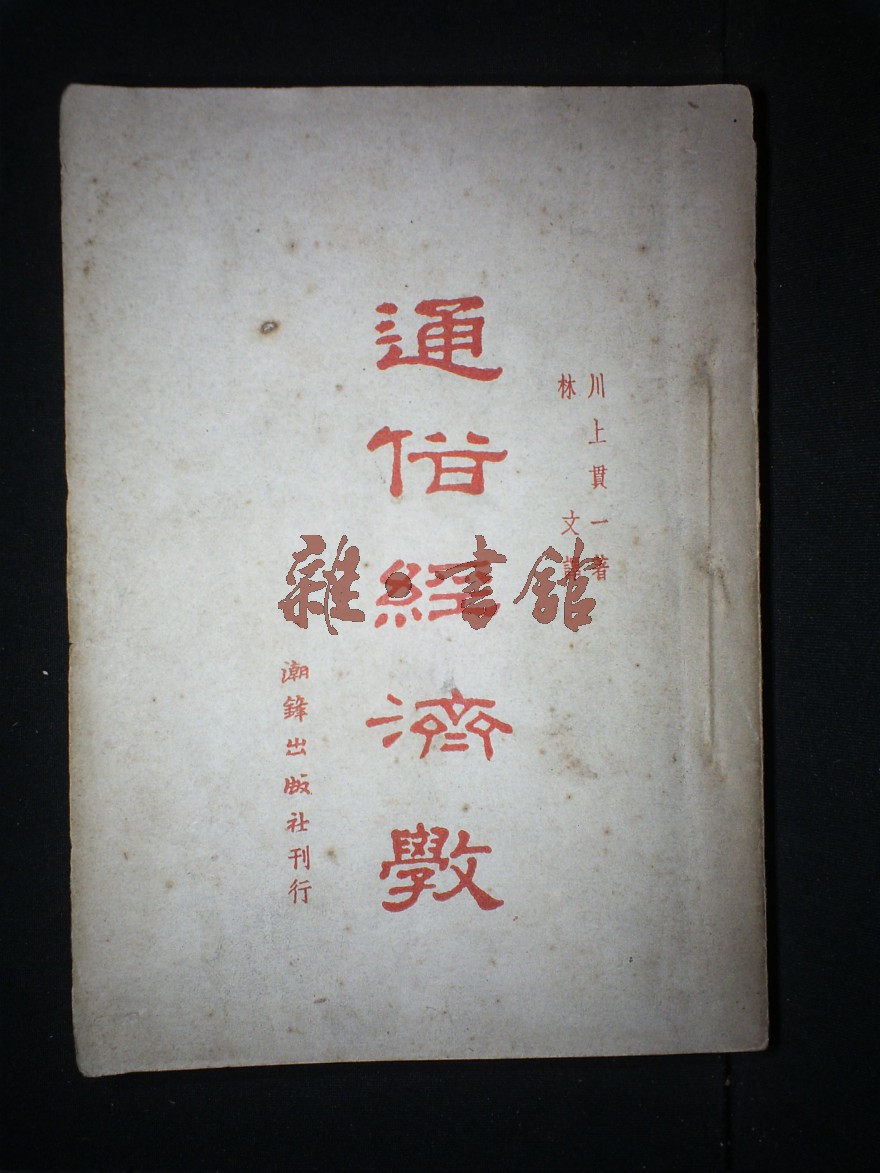 川上貫一著
林文譯
通俗經濟斆
潮鋒出版社刊行
雜·書館